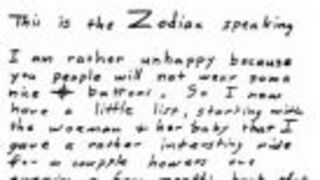 This is the Zodiac speaking
I am rather unhappy because
you people will not wear some
nice ⌖ buttons. So I now
have a little list, starting with
the woeman & her baby that I
gave a rather intersting ride
for a coupple howers one
evening a few months back that